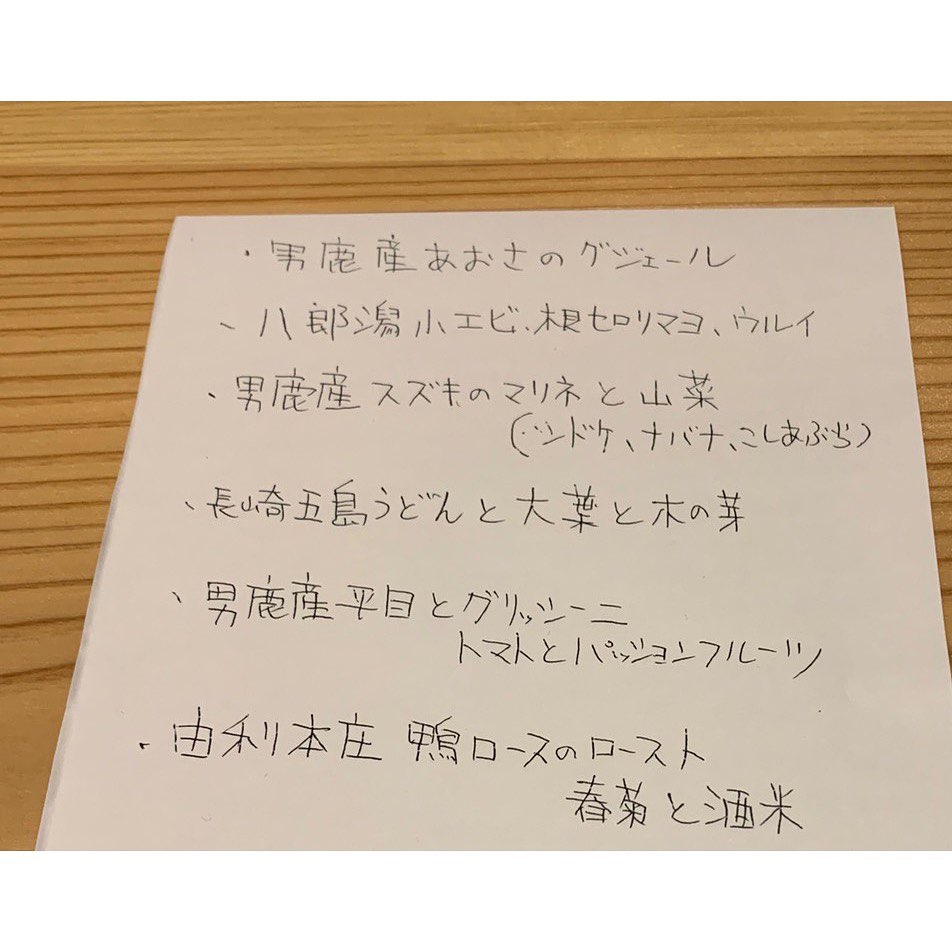 ・男鹿産あおさのグジェール
、八郎潟小エビ、根セロリマヨ、ウルイ
・男鹿産スズキのマリネと山菜
(シンドケ、ナバナ、こしあぶら)
、長崎五島うどんと大葉と木の芽
、男鹿産平目とグリッシーニ
トマトとパッションフルーツ
・由利本庄 鴨ロースのロースト
春菊と酒米